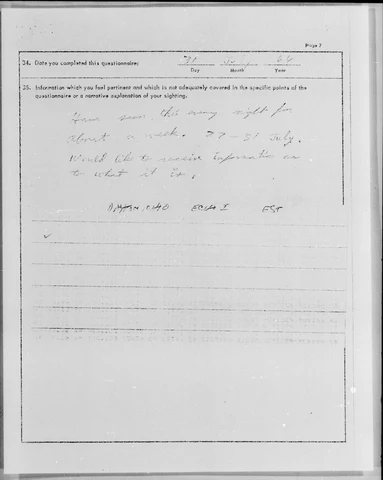 Page 7
34. Date you completed this questionnaire: 31 64
Day Month Year
35. Information which you feel pertinent and which is not adequately covered in the specific points of the
questionnaire or a narrative explanation of your sighting.
Have seen this every night for
about a week. 27-31 July.
Would like to receive information as
to what it is.
ECHO I EST